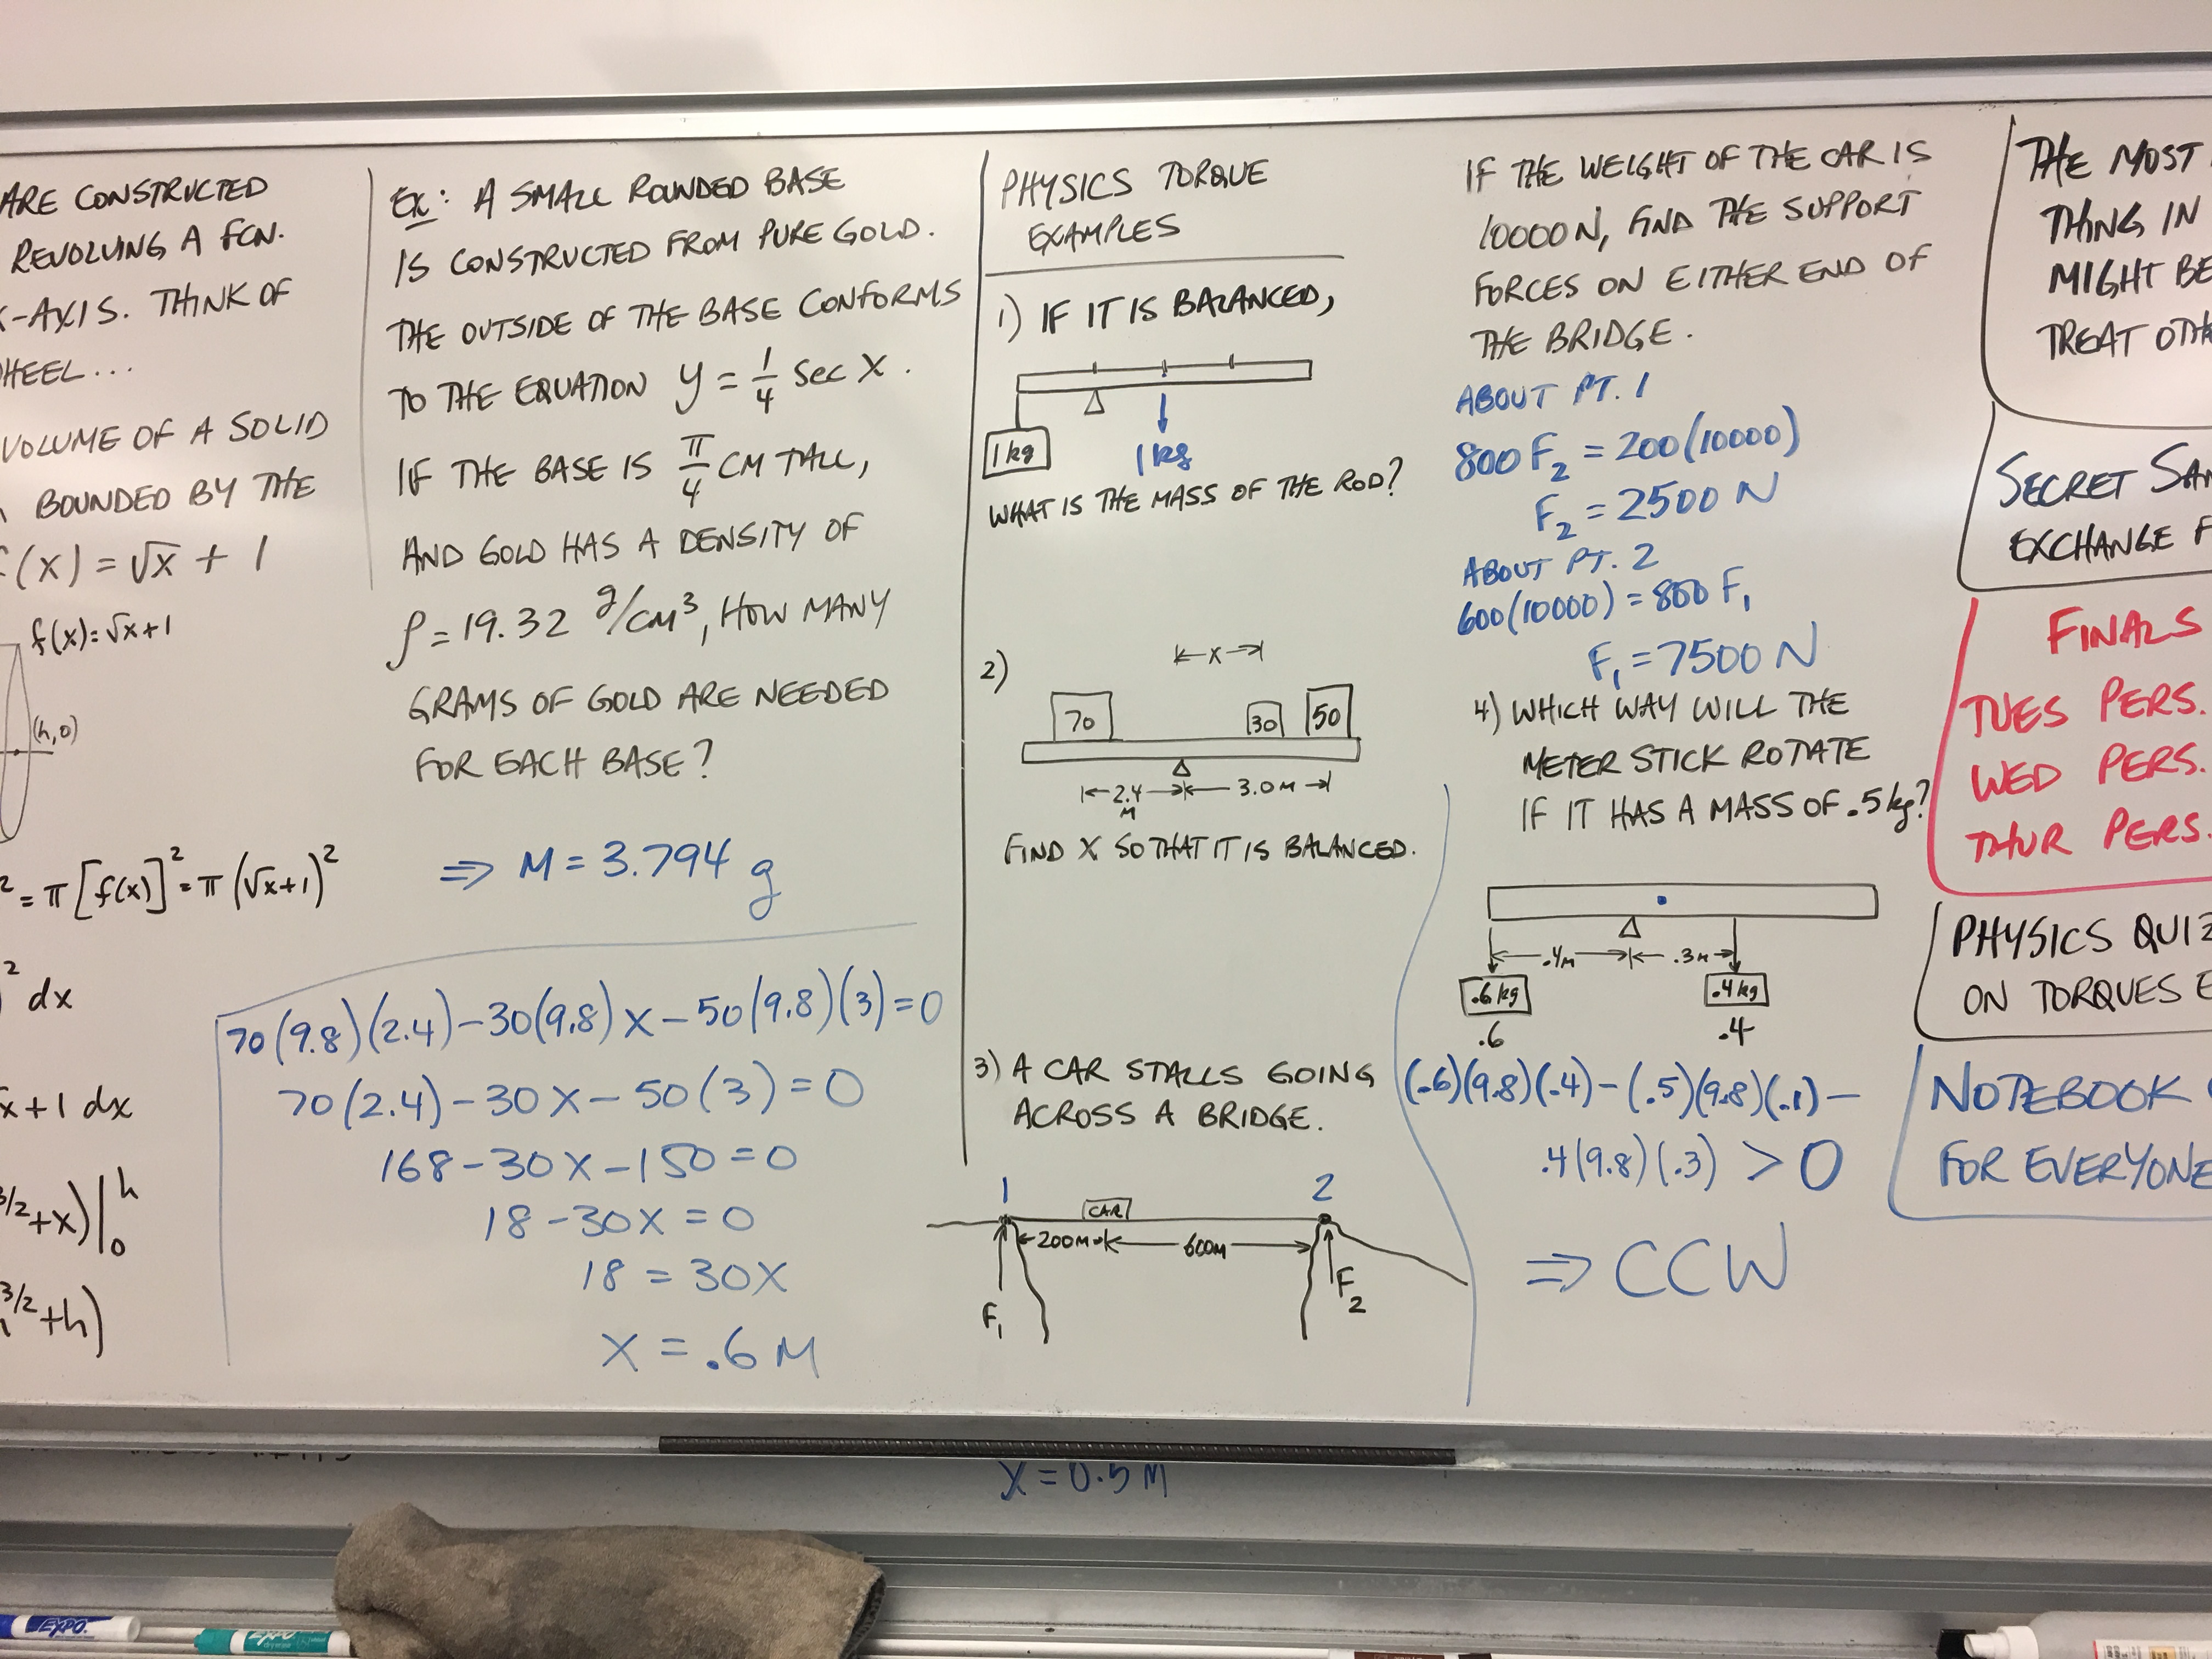 ARE CONSTRUCTED
REVOLVING A FCN.
X-AXIS. THINK OF
WHEEL...
VOLUME OF A SOLID
BOUNDED BY THE
f(x) = √x + 1
f(x)=√x+1
(h,0)
² = π [f(x)]² = π (√x+1)²
² dx
x+1 dx
3/2 + x)|₀ʰ
3/2 + h)
EX: A SMALL ROUNDED BASE
IS CONSTRUCTED FROM PURE GOLD.
THE OUTSIDE OF THE BASE CONFORMS
TO THE EQUATION y = 1/4 sec x.
IF THE BASE IS π/4 CM TALL,
AND GOLD HAS A DENSITY OF
ρ = 19.32 g/cm³, HOW MANY
GRAMS OF GOLD ARE NEEDED
FOR EACH BASE?
⇒ M = 3.794 g
70(9.8)(2.4) - 30(9.8)x - 50(9.8)(3) = 0
70(2.4) - 30x - 50(3) = 0
168 - 30x - 150 = 0
18 - 30x = 0
18 = 30x
x = .6 M
PHYSICS TORQUE
EXAMPLES
1) IF IT IS BALANCED,
1kg
1kg
WHAT IS THE MASS OF THE ROD?
2)
x
70
30
50
2.4 M
3.0 M
FIND X SO THAT IT IS BALANCED.
3) A CAR STALLS GOING
ACROSS A BRIDGE.
1
CAR
2
200M
600M
F₁
F₂
IF THE WEIGHT OF THE CAR IS
10000 N, FIND THE SUPPORT
FORCES ON EITHER END OF
THE BRIDGE.
ABOUT PT. 1
800 F₂ = 200(10000)
F₂ = 2500 N
ABOUT PT. 2
600(10000) = 800 F₁
F₁ = 7500 N
4) WHICH WAY WILL THE
METER STICK ROTATE
IF IT HAS A MASS OF .5 kg?
.4M
.3M
.6kg
.4kg
.6
.4
(.6)(9.8)(.4) - (.5)(9.8)(.1) -
.4(9.8)(.3) > 0
⇒ CCW
THE MOST
THING IN
MIGHT BE
TREAT OTH
SECRET SAN
EXCHANGE F
FINALS
TUES PERS.
WED PERS.
THUR PERS.
PHYSICS QUIZ
ON TORQUES E
NOTEBOOK
FOR EVERYONE
X = 0.5 M
EXPO
EXPO